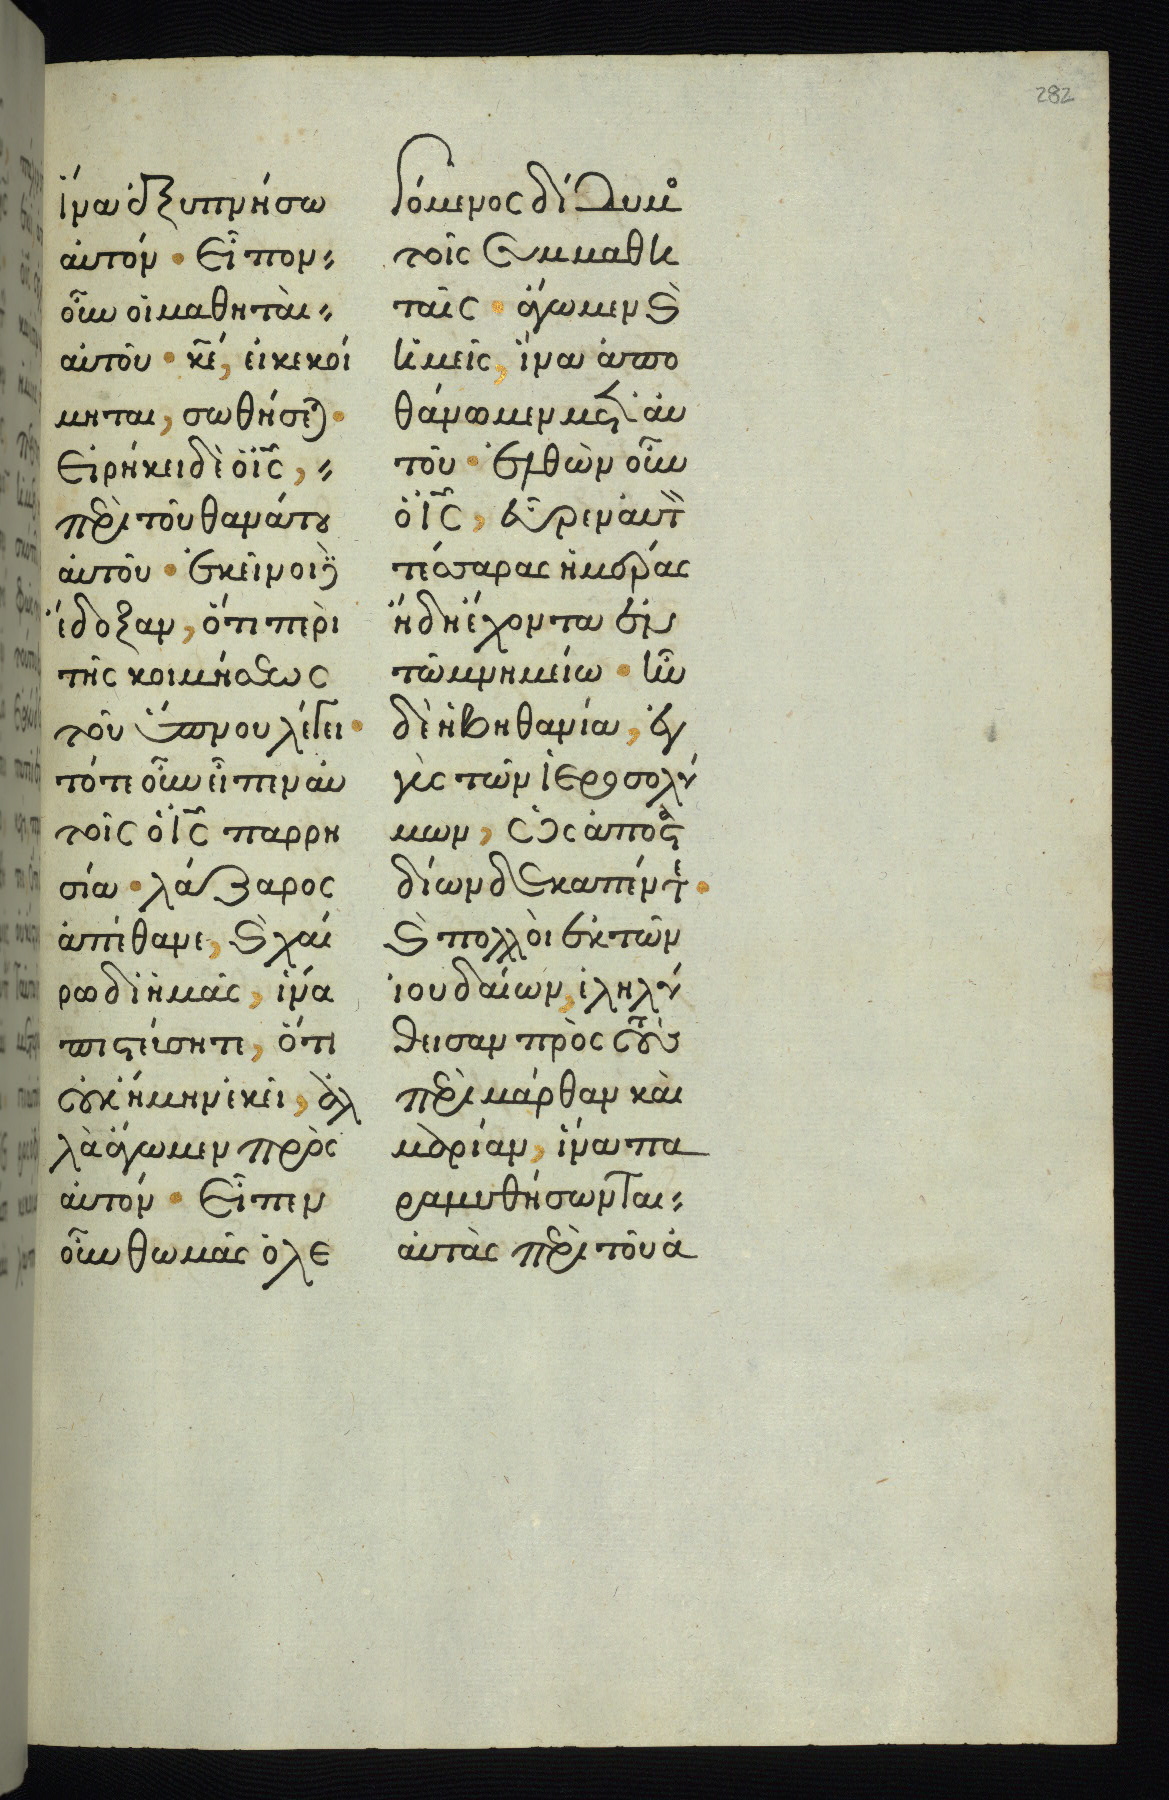 282
ἵνα ἐξυπνήσω
αὐτόν · Εἶπον
οὖν οἱ μαθηταὶ
αὐτοῦ · κ̅ε̅, εἰ κεκοί
μηται, σωθήσεται ·
Εἰρήκει δὲ ὁ ἰ̅ς̅,
περὶ τοῦ θανάτου
αὐτοῦ · ἐκεῖνοι δὲ
ἔδοξαν, ὅτι περὶ
τῆς κοιμήσεως
τοῦ ὕπνου λέγει ·
τότε οὖν εἶπεν αὐ
τοῖς ὁ ἰ̅ς̅ παρρη
σία · λάζαρος
ἀπέθανε, καὶ χαί
ρω δι ἡμᾶς, ἵνα
πιστεύσητε, ὅτι
οὐκ ἤμην ἐκεῖ, ἀλ
λὰ ἄγωμεν πρὸς
αὐτόν · Εἶπεν
οὖν θωμᾶς ὁ λε
γόμενος δίδυμος
τοῖς συμμαθη
ταῖς · ἄγωμεν καὶ
ἡμεῖς, ἵνα ἀπο
θάνωμεν μετ αὐ
τοῦ · ἐλθὼν οὖν
ὁ ἰ̅ς̅, εὗρεν αὐτὸν
τέσσαρας ἡμέρας
ἤδη ἔχοντα ἐν
τῶ μνημείω · ἦν
δὲ ἡ βηθανία, ἐγ
γὺς τῶν ἱεροσολύ
μων, ὡς ἀπὸ στα
δίων δεκαπέντε ·
καὶ πολλοὶ ἐκ τῶν
ἰουδαίων, ἐληλύ
θεισαν πρὸς τὰς
περὶ μάρθαν καὶ
μαρίαν, ἵνα πα
ραμυθήσωνται
αὐτὰς περὶ τοῦ ἀ